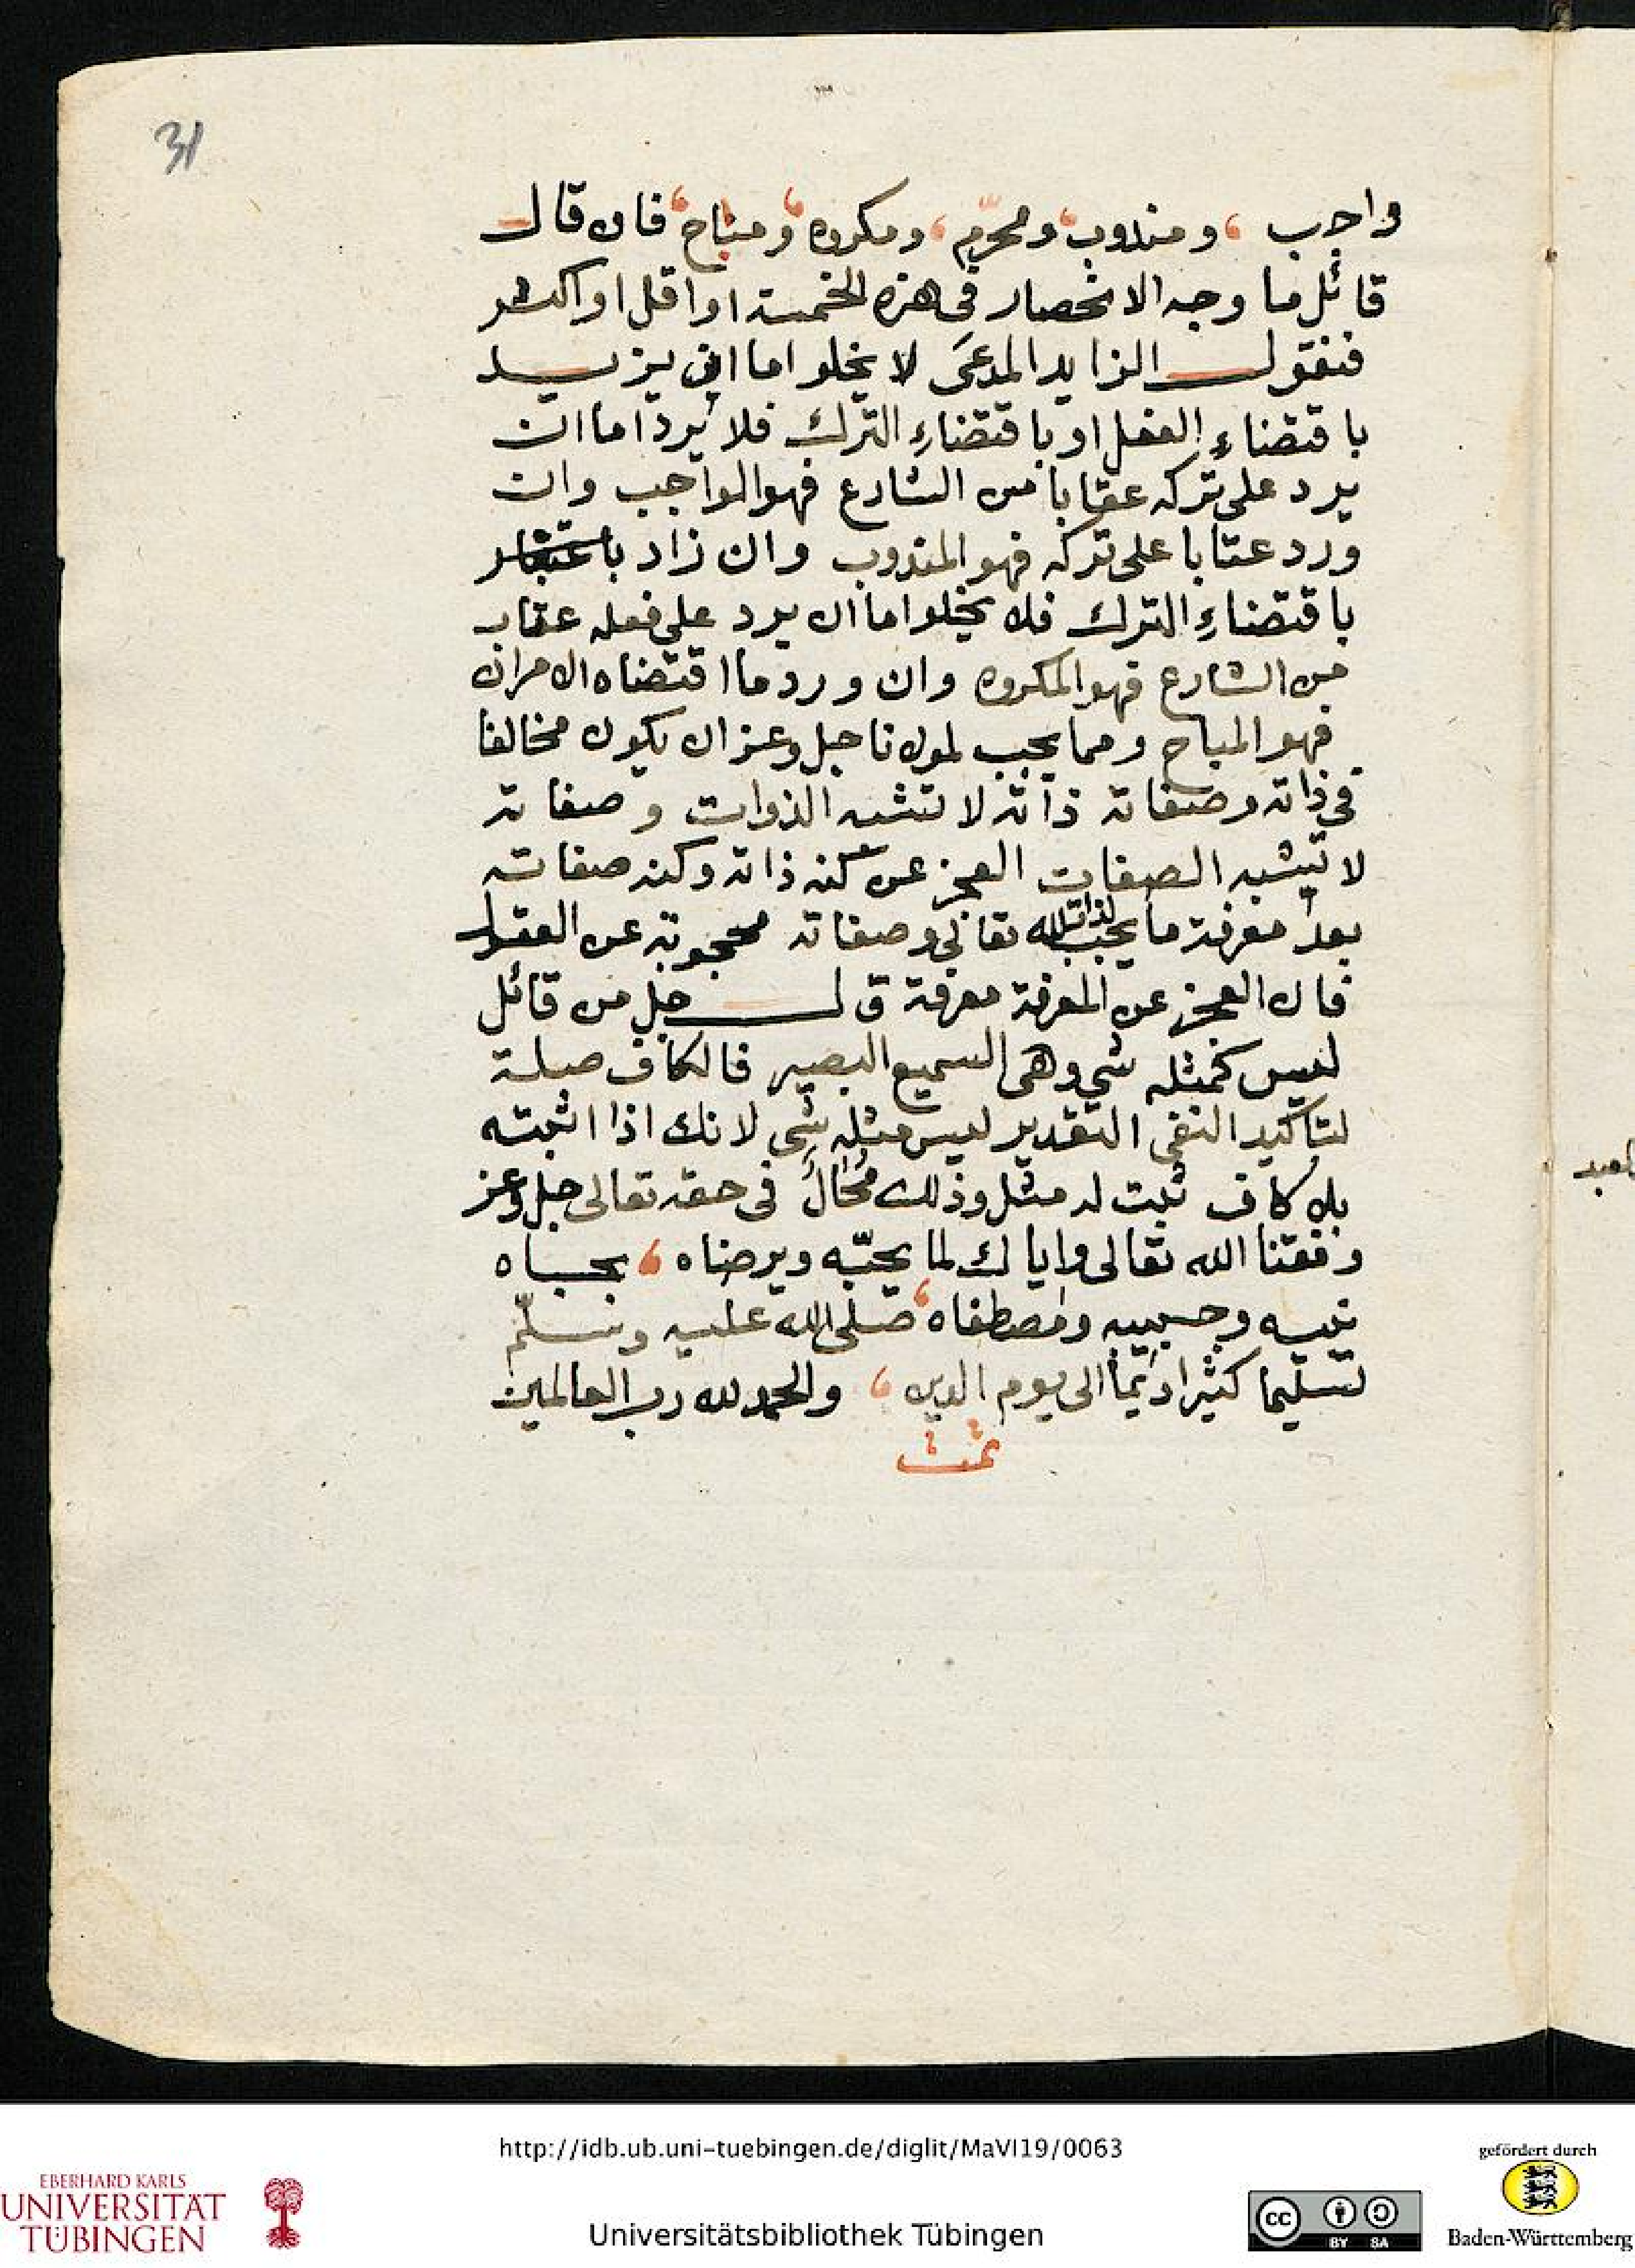 31
واجب ، ومندوب ، ومحرّم ، ومكروه ، ومباح ، فان قال
قائل ما وجه الانحصار فى هذه الخمسة او اقل او اكثر
فنقول الزايد المدعى لا يخلوا اما ان يزيد
باقتضاءِ الفعل او باقتضاءِ الترك فلا يرد اما ان
يرد على تركه عقابا من الشارع فهو الواجب وان
ورد عتابا على تركه فهو المندوب وان زاد باعتبار
باقتضاءِ الترك فلا يخلوا اما ان يرد على فعله عقاب
من الشارع فهو المكروه وان ورد ما اقتضاه الامران
فهو المباح ومما يجب لمولانا جل وعز ان يكون مخالفا
فى ذاته وصفاته ذاته لا تشبه الذوات وصفاته
لا تشبه الصفات العجز عن كنه ذاته وكنه صفاته
بعد معرفة ما يجب لذات الله تعالى وصفاته محجوبة عن العقل
فان العجز عن المعرفة معرفة قال جل من قائل
ليس كمثله شي وهى السميع البصير فالكاف صلة
لتاكيد النفى التقدير ليس مثله شى لانك اذا اثبته
بلا كاف ثبت له مثل وذلك مُحَالٌ فى حقه تعالى جل وعز
وفقنا الله تعالى واياك لما يحبّه ويرضاه ، بجاه
نبيه وحبيبه ومصطفاه ، صلى الله عليه وسلّم
تسليما كثيرا دئيما الى يوم الدين ، والحمد لله رب العالمين
تمت
لعبد
http://idb.ub.uni-tuebingen.de/diglit/MaVI19/0063
EBERHARD KARLS
UNIVERSITÄT
TÜBINGEN
Universitätsbibliothek Tübingen
cc BY SA
gefördert durch
Baden-Württemberg